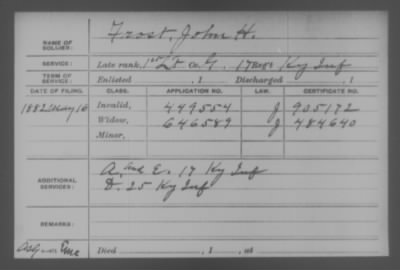 NAME OF SOLDIER: Frost, John H.
SERVICE: Late rank, 1st Lt Co. G, 17 Reg't Ky Inf
TERM OF SERVICE: Enlisted , 1 Discharged , 1
DATE OF FILING. CLASS. APPLICATION NO. LAW. CERTIFICATE NO.
1882 May 16 Invalid, 449554 J 905172
Widow, 646589 J 484640
Minor,
ADDITIONAL SERVICES: A. and E. 17 Ky Inf
D. 25 Ky Inf
REMARKS:
Died , 1 , at